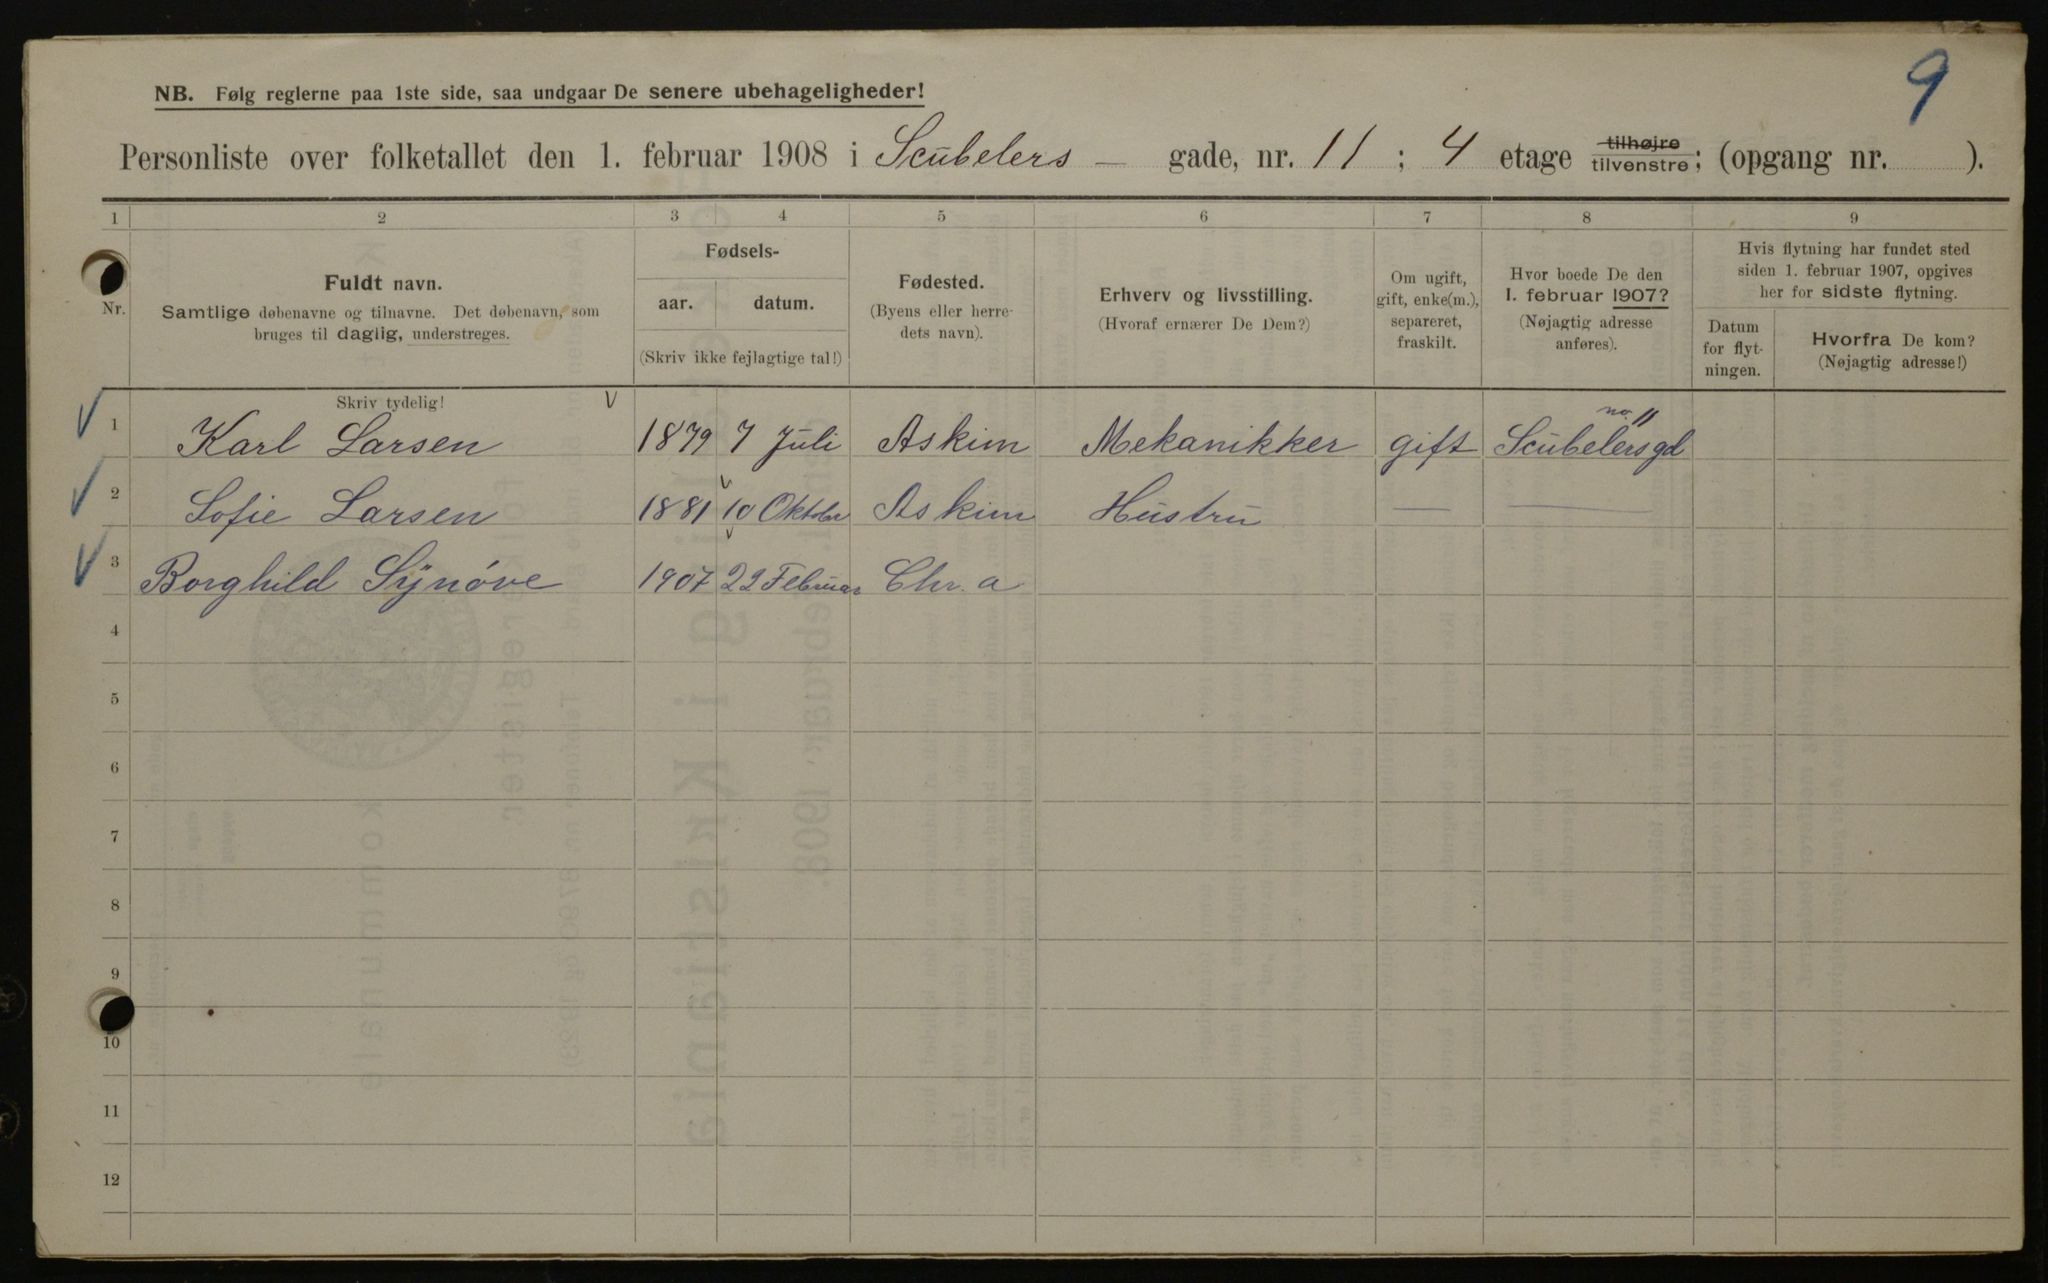 9
NB. Følg reglerne paa 1ste side, saa undgaar De senere ubehageligheder!
Personliste over folketallet den 1. februar 1908 i Scubelers — gade, nr. 11 ; 4 etage tilhøjre tilvenstre; (opgang nr. ).
1 2 3 4 5 6 7 8 9
Nr. Fuldt navn. Samtlige døbenavne og tilnavne. Det døbenavn, som bruges til daglig, understreges.
Fødsels- aar. datum. (Skriv ikke fejlagtige tal!)
Fødested. (Byens eller herredets navn).
Erhverv og livsstilling. (Hvoraf ernærer De Dem?)
Om ugift, gift, enke(m.), separeret, fraskilt.
Hvor boede De den 1. februar 1907? (Nøjagtig adresse anføres).
Hvis flytning har fundet sted siden 1. februar 1907, opgives her for sidste flytning.
Datum for flytningen.
Hvorfra De kom? (Nøjagtig adresse!)
Skriv tydelig!
1 Karl Larsen 1879 7 Juli Askim Mekanikker gift Scubelersgd no. 11
2 Sofie Larsen 1881 10 Oktober Askim Hustru — —
3 Borghild Sÿnóve 1907 22 Februar Chr. a
4
5
6
7
8
9
10
11
12